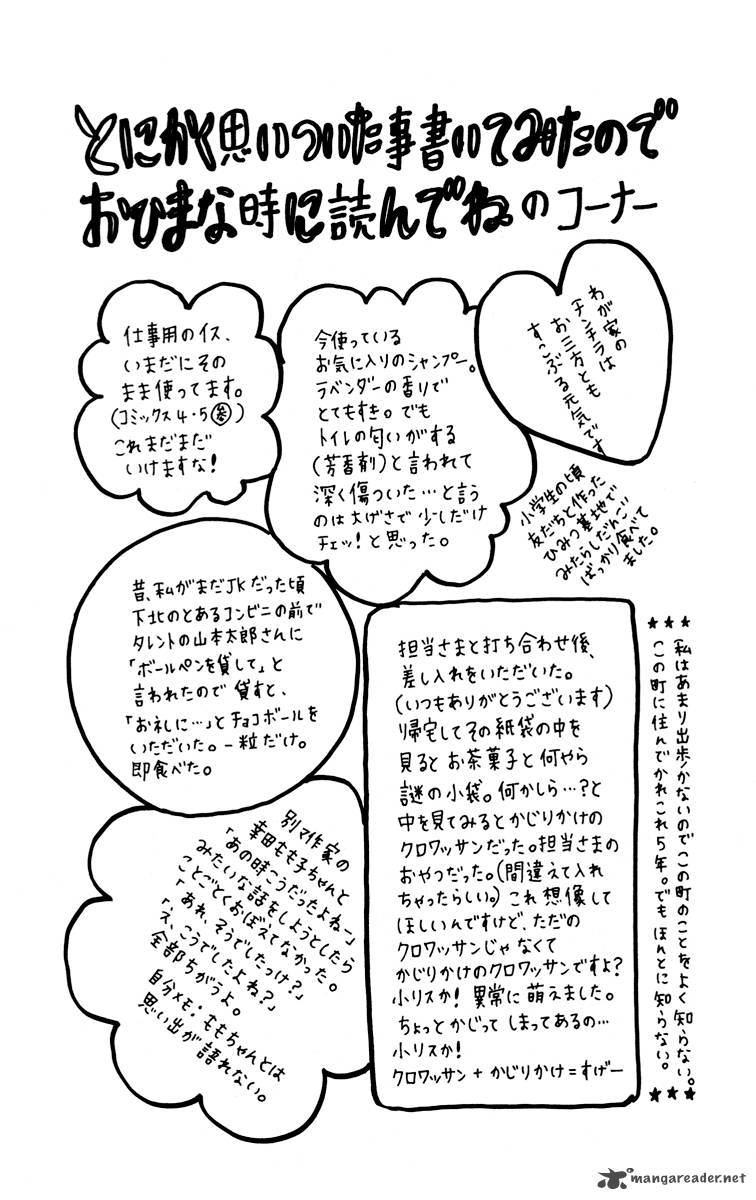 とにかく思いついた事書いてみたので
おひまな時に読んでね のコーナー
わが家の
チンチラは
お三方とも
すこぶる元気です
今使っている
お気に入りのシャンプー。
ラベンダーの香りで
とてもすき。でも
トイレの匂いがする
(芳香剤)と言われて
深く傷ついた…と言う
のは大げさで少しだけ
チェッ!と思った。
仕事用のイス、
いまだにその
まま使ってます。
(コミックス4・5巻)
これまだまだ
いけますな!
小学生の頃
友だちと作った
ひみつ基地で
みたらしだんご
ばっかり食べて
ました。
昔、私がまだJKだった頃
下北のとあるコンビニの前で
タレントの山本太郎さんに
「ボールペンを貸して」と
言われたので 貸すと、
「お礼に…」とチョコボールを
いただいた。一粒だけ。
即食べた。
★★★私はあまり出歩かないのでこの町のことをよく知らない。★★★
この町に住んでかれこれ5年。でもほんとに知らない。
担当さまと打ち合わせ後、
差し入れをいただいた。
(いつもありがとうございます)
帰宅してその紙袋の中を
見ると お茶菓子と何やら
謎の小袋。何かしら…?と
中を見てみるとかじりかけの
クロワッサンだった。担当さまの
おやつだった。(間違えて入れ
ちゃったらしい。) これ想像して
ほしいんですけど、ただの
クロワッサンじゃなくて
かじりかけのクロワッサンですよ?
小リスか! 異常に萌えました。
ちょっとかじって しまってあるの…
小リスか!
クロワッサン+かじりかけ=すげー
別マ作家の
幸田もも子ちゃんと
「あの時こうだったよねー」
みたいな話をしようとしたら
ことごとくおぼえてなかった。
「あれ、そうでしたっけ?」
「え、こうでしたよね?」
全部ちがうよ。
自分メモ・ももちゃんとは
思い出が語れない。
mangareader.net